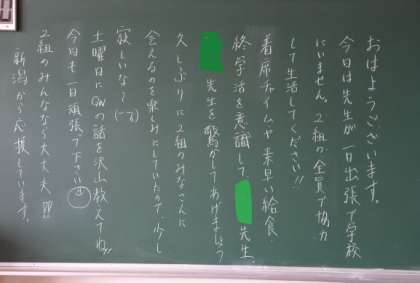 おはようございます。
今日は先生が一日出張で学校
にいません。2組の全員で協力
して生活してください!!
着席チャイムや素早い給食、
終学活を意識して 先生、
先生を驚かせてあげましょう
久しぶりに2組のみなさんに
会えるのを楽しみにしていたので、少し
寂しいな〜
土曜日にGWの話を沢山教えてね!!
今日も一日頑張って下さい
2組のみんななら大丈夫!!!
新潟から応援しています。